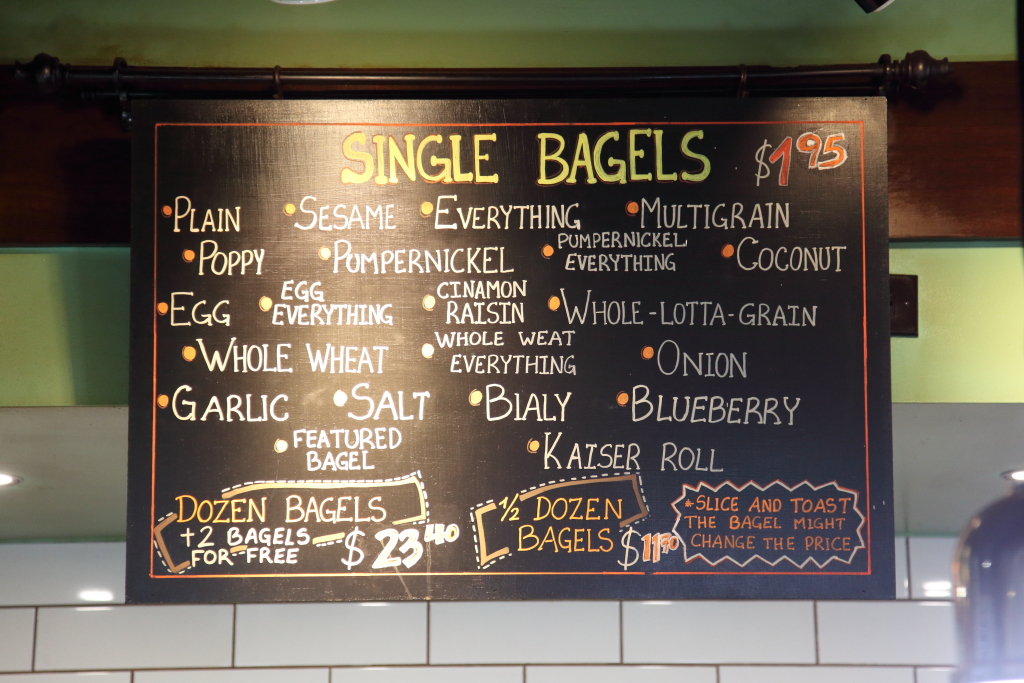 SINGLE BAGELS $1.95
• PLAIN • SESAME • EVERYTHING • MULTIGRAIN
• POPPY • PUMPERNICKEL • PUMPERNICKEL EVERYTHING • COCONUT
• EGG • EGG EVERYTHING • CINAMON RAISIN • WHOLE-LOTTA-GRAIN
• WHOLE WHEAT • WHOLE WEAT EVERYTHING • ONION
• GARLIC • SALT • BIALY • BLUEBERRY
• FEATURED BAGEL • KAISER ROLL
DOZEN BAGELS
+2 BAGELS
FOR-FREE $23.40
1/2 DOZEN
BAGELS $11.70
*SLICE AND TOAST
THE BAGEL MIGHT
CHANGE THE PRICE